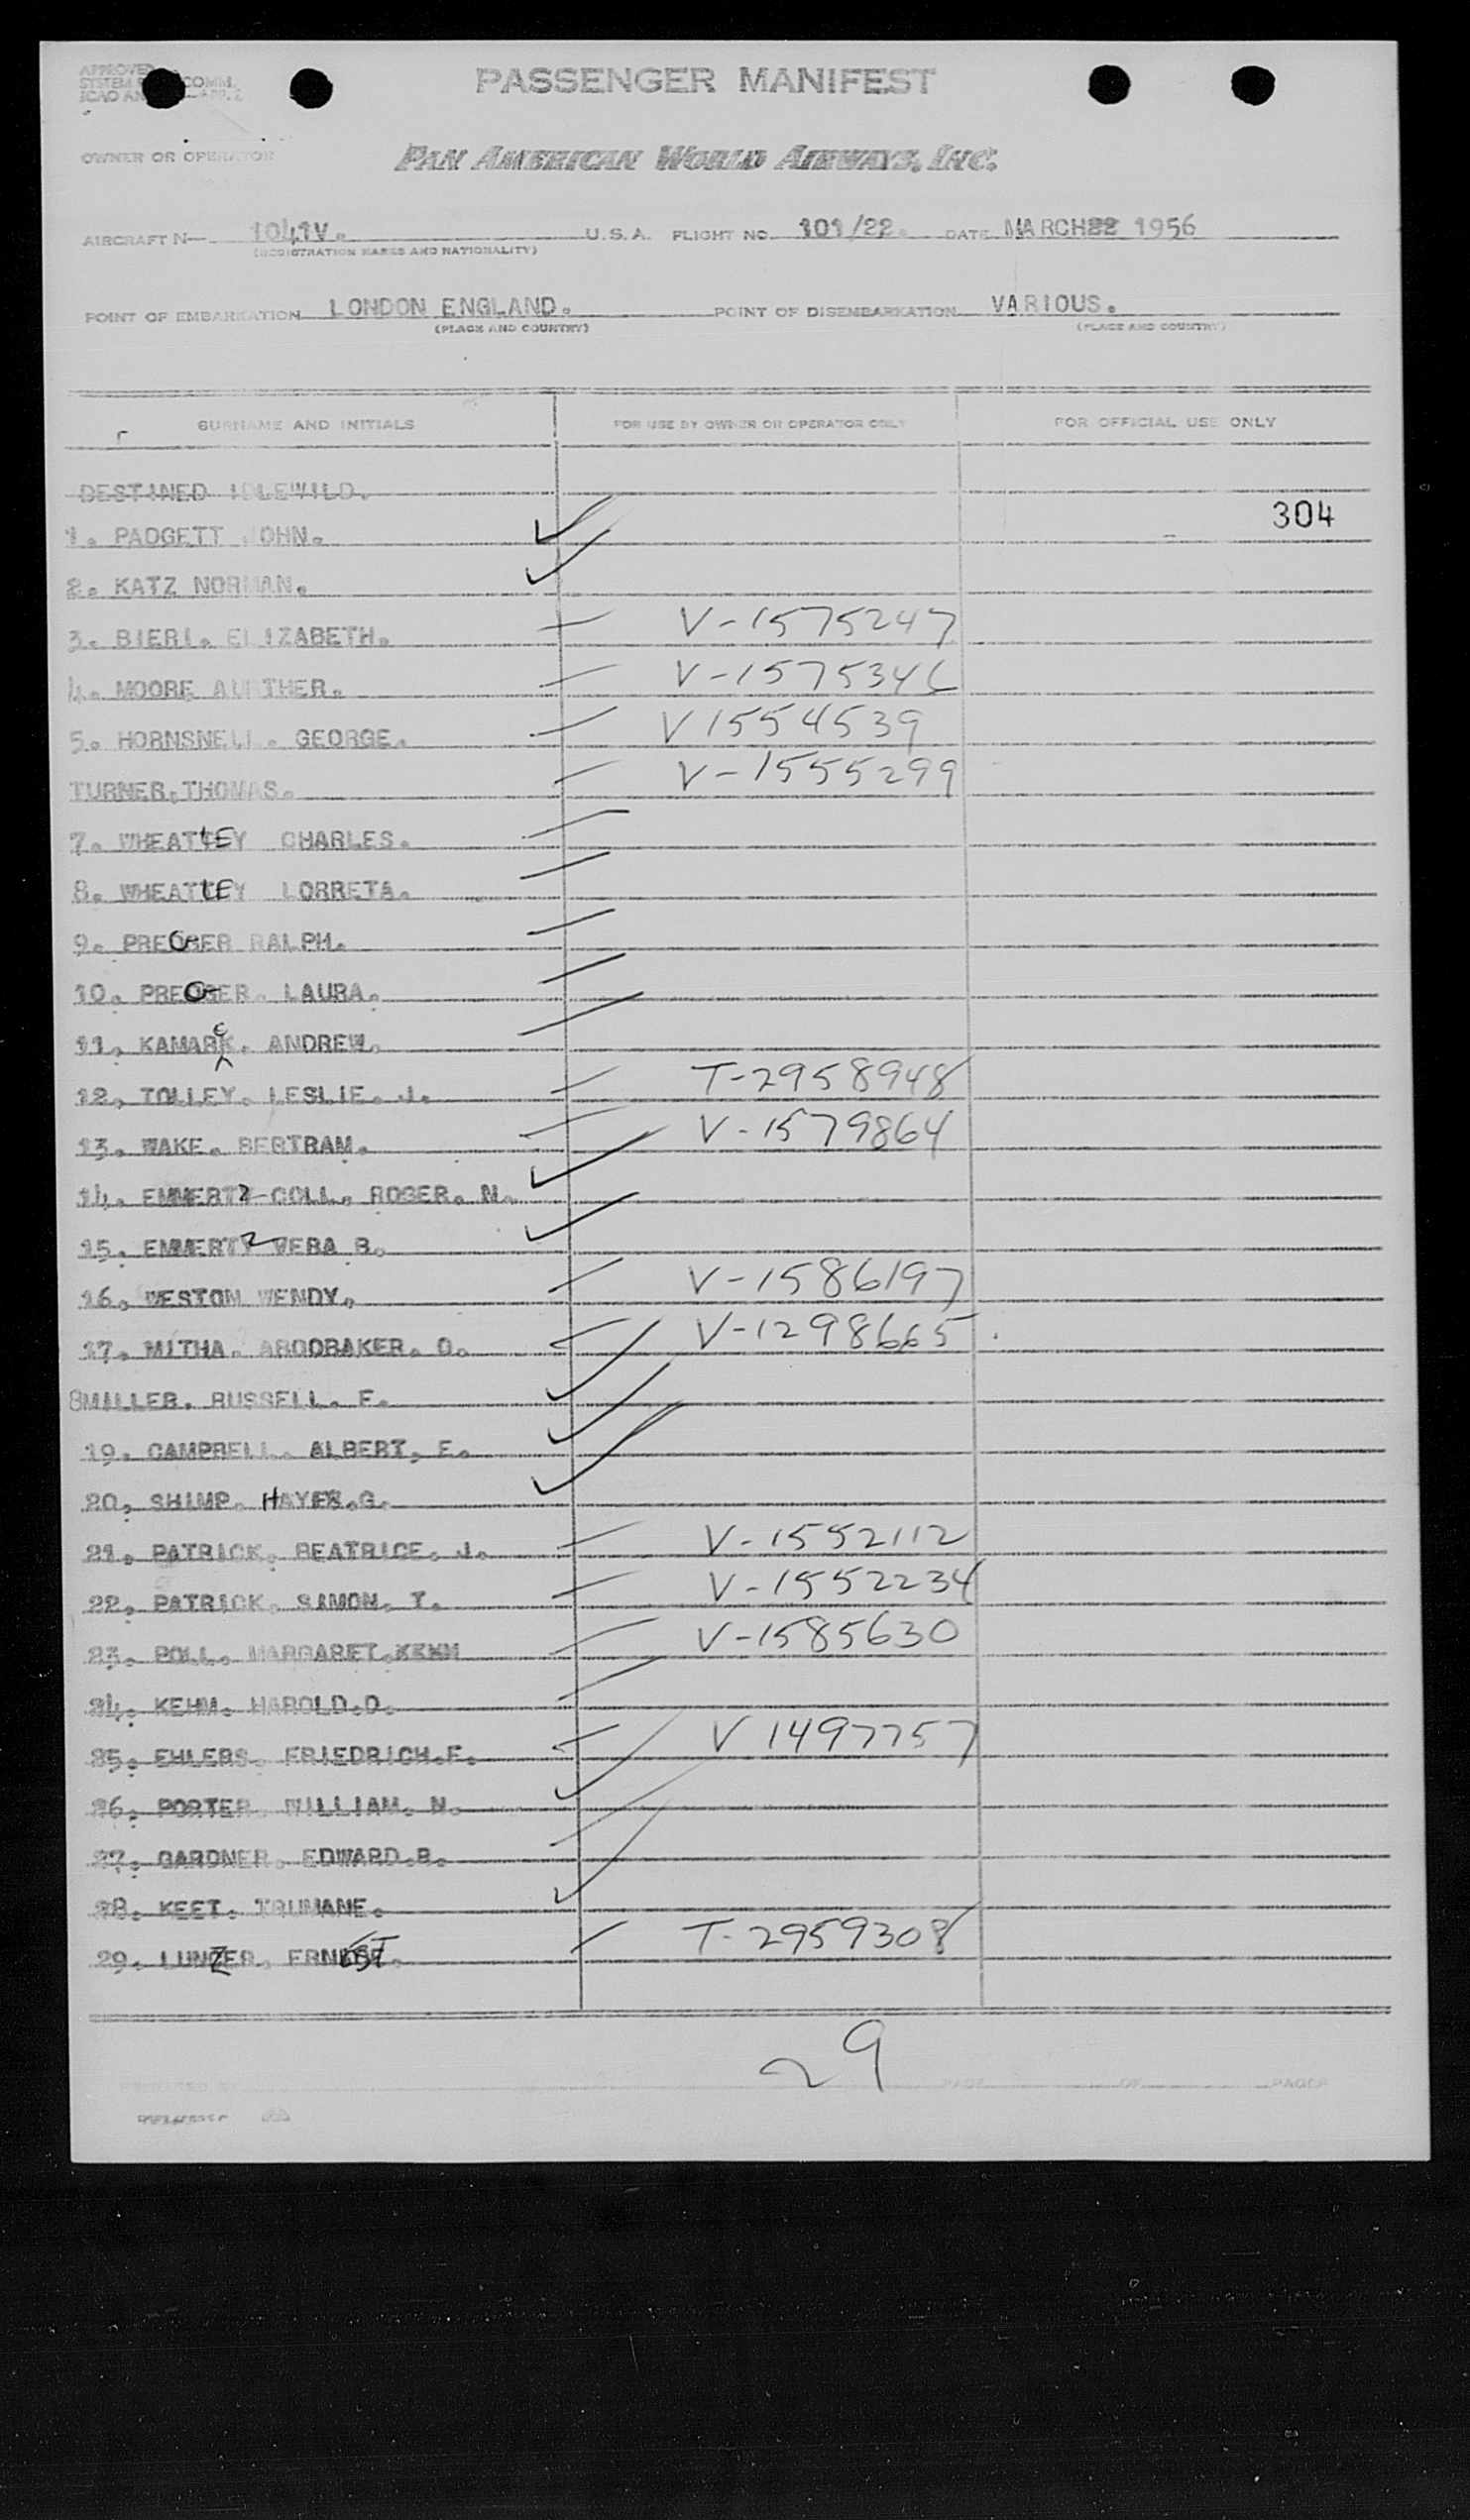 APPROVED
SYSTEM COMM.
ICAO AN
PASSENGER MANIFEST
OWNER OR OPERATOR PAN AMERICAN WORLD AIRWAYS, INC.
AIRCRAFT N— 1041V. U.S.A. FLIGHT NO. 101/22. DATE MARCH 22 1956
(REGISTRATION MARKS AND NATIONALITY)
POINT OF EMBARKATION LONDON ENGLAND. POINT OF DISEMBARKATION VARIOUS.
(PLACE AND COUNTRY) (PLACE AND COUNTRY)
SURNAME AND INITIALS FOR USE BY OWNER OR OPERATOR ONLY FOR OFFICIAL USE ONLY
DESTINED IDLEWILD.
304
1. PADGETT JOHN.
2. KATZ NORMAN.
3. BIERI. ELIZABETH. V-1575247
4. MOORE AURTHER. V-1575346
5. HORNSNELL. GEORGE. V 1554539
TURNER.THOMAS. V-1555299
7. WHEATLEY CHARLES.
8. WHEATLEY LORRETA.
9. PREGER RALPH.
10. PREGER. LAURA.
11. KAMARCK. ANDREW.
12. TOLLEY. LESLIE. J. T-2958948
13. WAKE. BERTRAM. V-1579864
14. EMMERTZ COLL. ROGER. N.
15. EMMERTZ VERA B.
16. WESTON WENDY. V-1586197
17. MITHA. ABOOBAKER. O. V-1298665
8MILLER. RUSSELL. F.
19. CAMPBELL. ALBERT. E.
20. SHIMP. HAYES.G.
21. PATRICK. BEATRICE. J. V-1552112
22. PATRICK. SIMON. T. V-1552234
23. POLL. MARGARET. V-1585630
24. KEHM. HAROLD.D.
25. EHLERS. FRIEDRICH.F. V 1497757
26. PORTER WILLIAM. N.
27. GARDNER. EDWARD.B.
28. KEET. TRUMANE.
29. LUNZER. ERNEST. T-2959308
29
PAGE OF PAGES